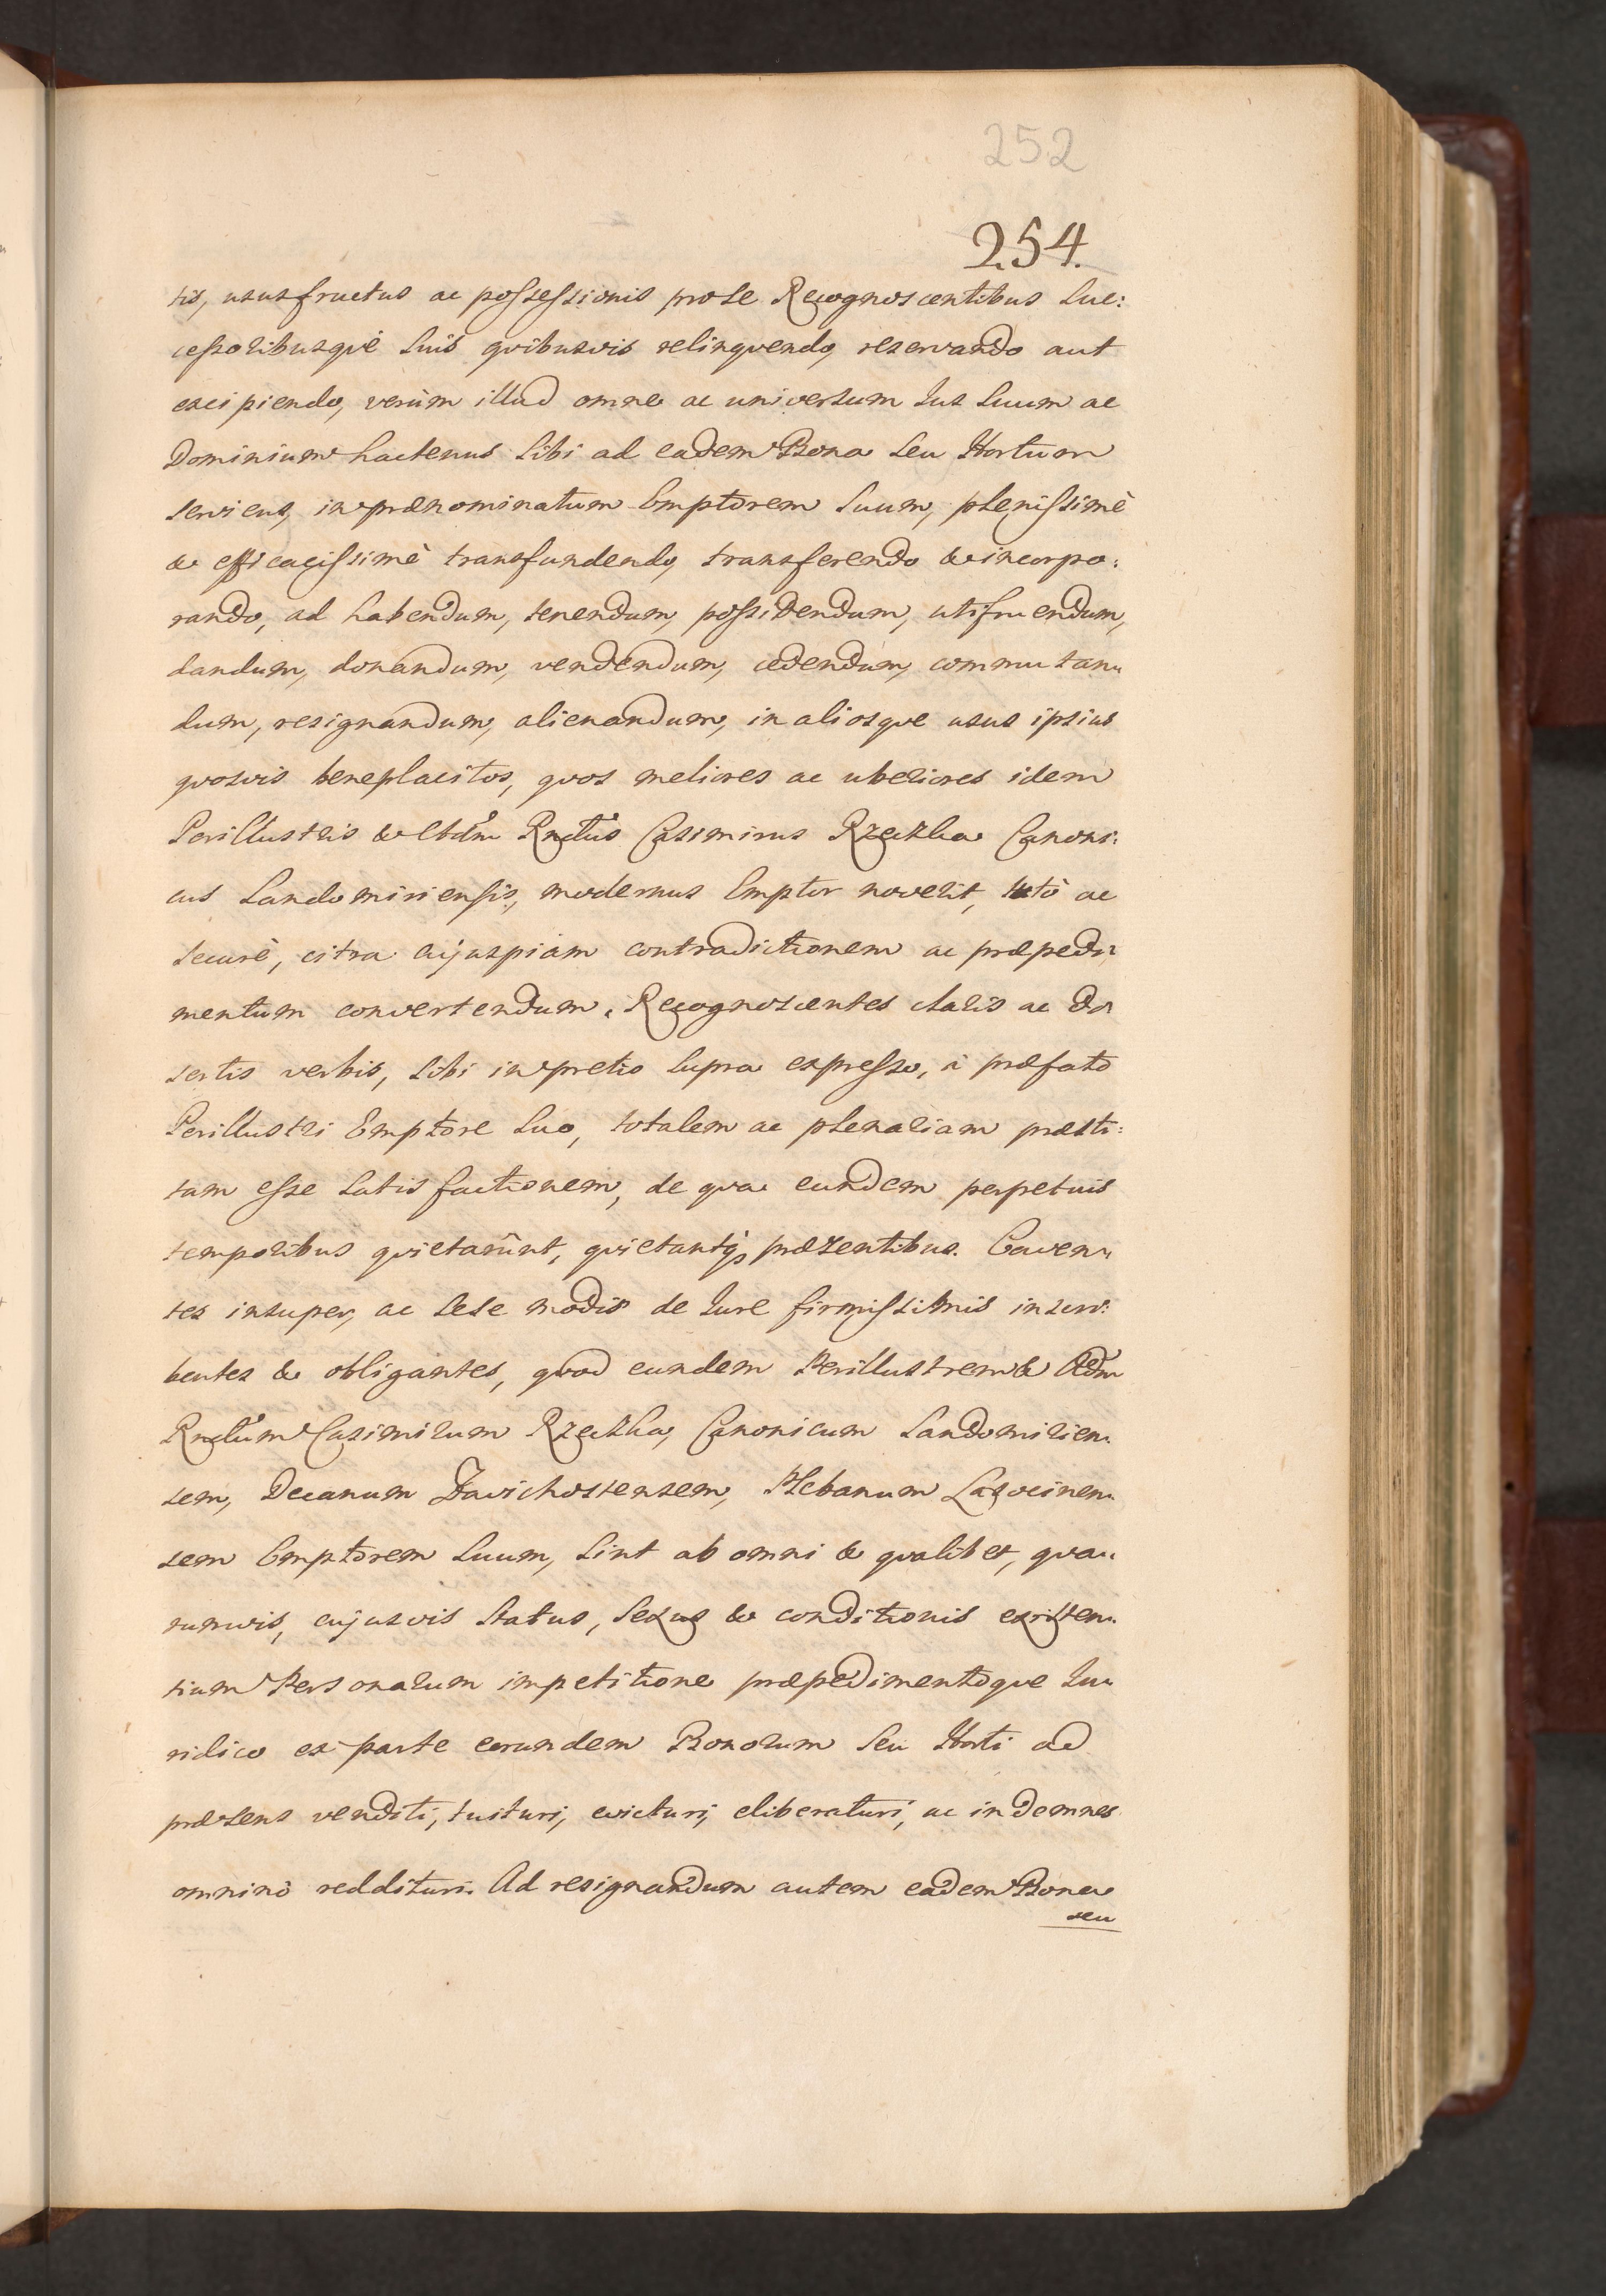 252
254.
tis, ususfructus ac possessionis pro se Recognoscentibus Suc:
cessoribusqve suis qvibusvis relinqvendo, reservando aut
excipiendo, verùm illud omne ac universum Jus Suum ac
Dominium hactenus Sibi ad eadem Bona seu Hortum
serviens, in prænominatum Emptorem Suum, plenissimè
& efficacissimè transfundendo, transferendo & incorpo:
rando, ad habendum, tenendum, possidendum, utifruendum,
dandum, donandum, vendendum, cedendum, commutan„
dum, resignandum, alienandum, in aliosqve usus ipsius
qvosvis beneplacitos, qvos meliores ac uberiores idem
Perillustris & Adm Rndus Casimirus Rzączka Canoni:
cus Sandomiriensis, modernus Emptor noverit, tutò ac
securè, citra cujuspiam contradictionem ac præpedi„
mentum convertendum. Recognoscentes claris ac di„
sertis verbis, Sibi in pretio supra expresso, à præfato
Perillustri Emptore Suo, totalem ac plenariam præsti:
tam esse Satisfactionem, de qva eundem perpetuis
temporibus qvietarunt, qvietantq; præsentibus. Caven„
tes insuper, ac sese modis de Jure firmissimis inscri:
bentes & obligantes, qvod eundem Perillustrem & Adm
Rndum Casimirum Rzączka, Canonicum Sandomirien„
sem, Decanum Zavichostensem, Plebanum Lasocinen„
sem Emptorem Suum, sint ab omni & qvalibet, qva„
rumvis, cujusvis Status, Sexus & conditionis existen„
tium Personarum impetitione præpedimentoqve Ju„
ridico ex parte eorundem Bonorum seu Horti ad
præsens venditi, tuituri, evicturi, eliberaturi, ac indemnes
omninò reddituri. Ad resignandum autem eadem Bona
seu